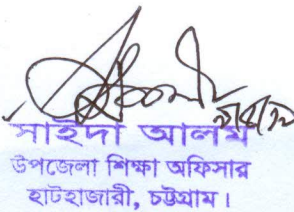 সাইদা আলম
উপজেলা শিক্ষা অফিসার
হাটহাজারী, চট্টগ্রাম।